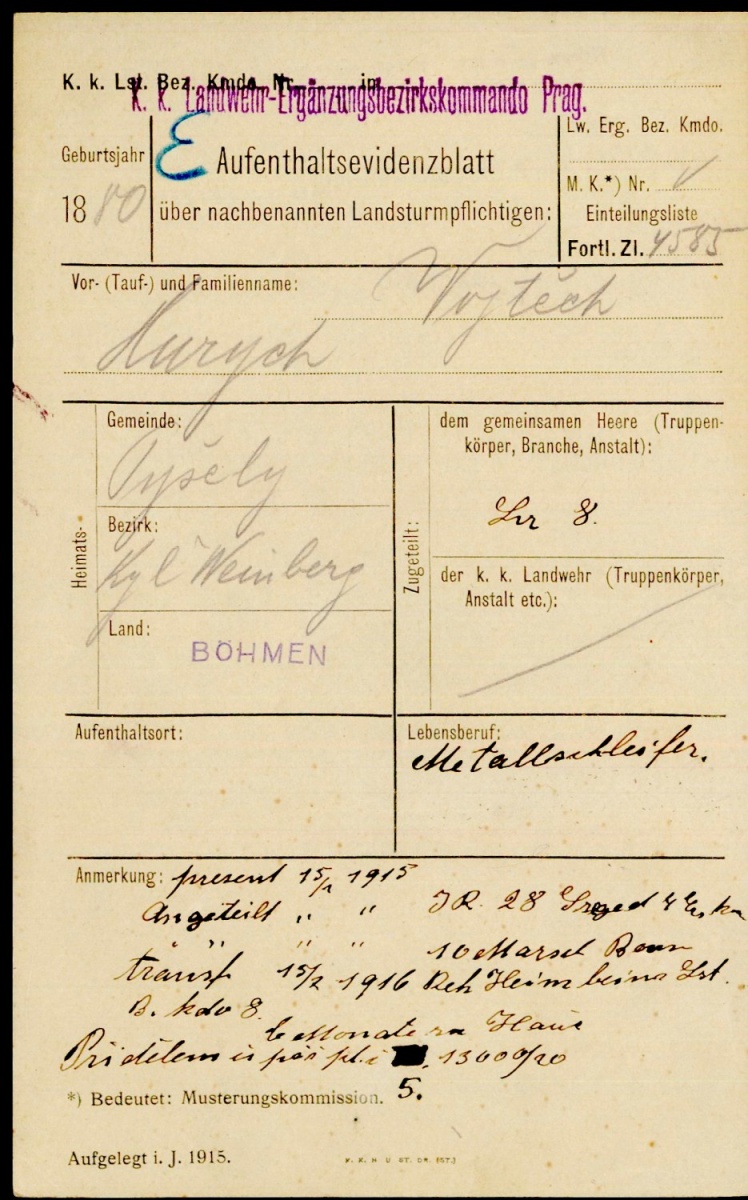 K. k. Lst. Bez. Kmdo. Nr. in
K. k. Landwehr-Ergänzungsbezirkskommando Prag.
Geburtsjahr
1880
E
Aufenthaltsevidenzblatt
über nachbenannten Landsturmpflichtigen:
Lw. Erg. Bez. Kmdo.
M. K.*) Nr.
Einteilungsliste
Fortl. Zl. 4585
Vor- (Tauf-) und Familienname:
Vojtěch
Hurych
Heimats-
Gemeinde:
Pyšely
Bezirk:
Kgl Weinberg
Land:
BÖHMEN
Zugeteilt:
dem gemeinsamen Heere (Truppen-
körper, Branche, Anstalt):
8.
der k. k. Landwehr (Truppenkörper,
Anstalt etc.):
Aufenthaltsort:
Lebensberuf:
Metallschleifer.
Anmerkung: present 15/ 1915
Angeteilt " " IR. 28
" " 10 Marsch Baon
transf 15/2 1916 Heim beim Lst.
B. kdo 8.
6 Monate zu Haus
13000/20
5.
*) Bedeutet: Musterungskommission.
Aufgelegt i. J. 1915.